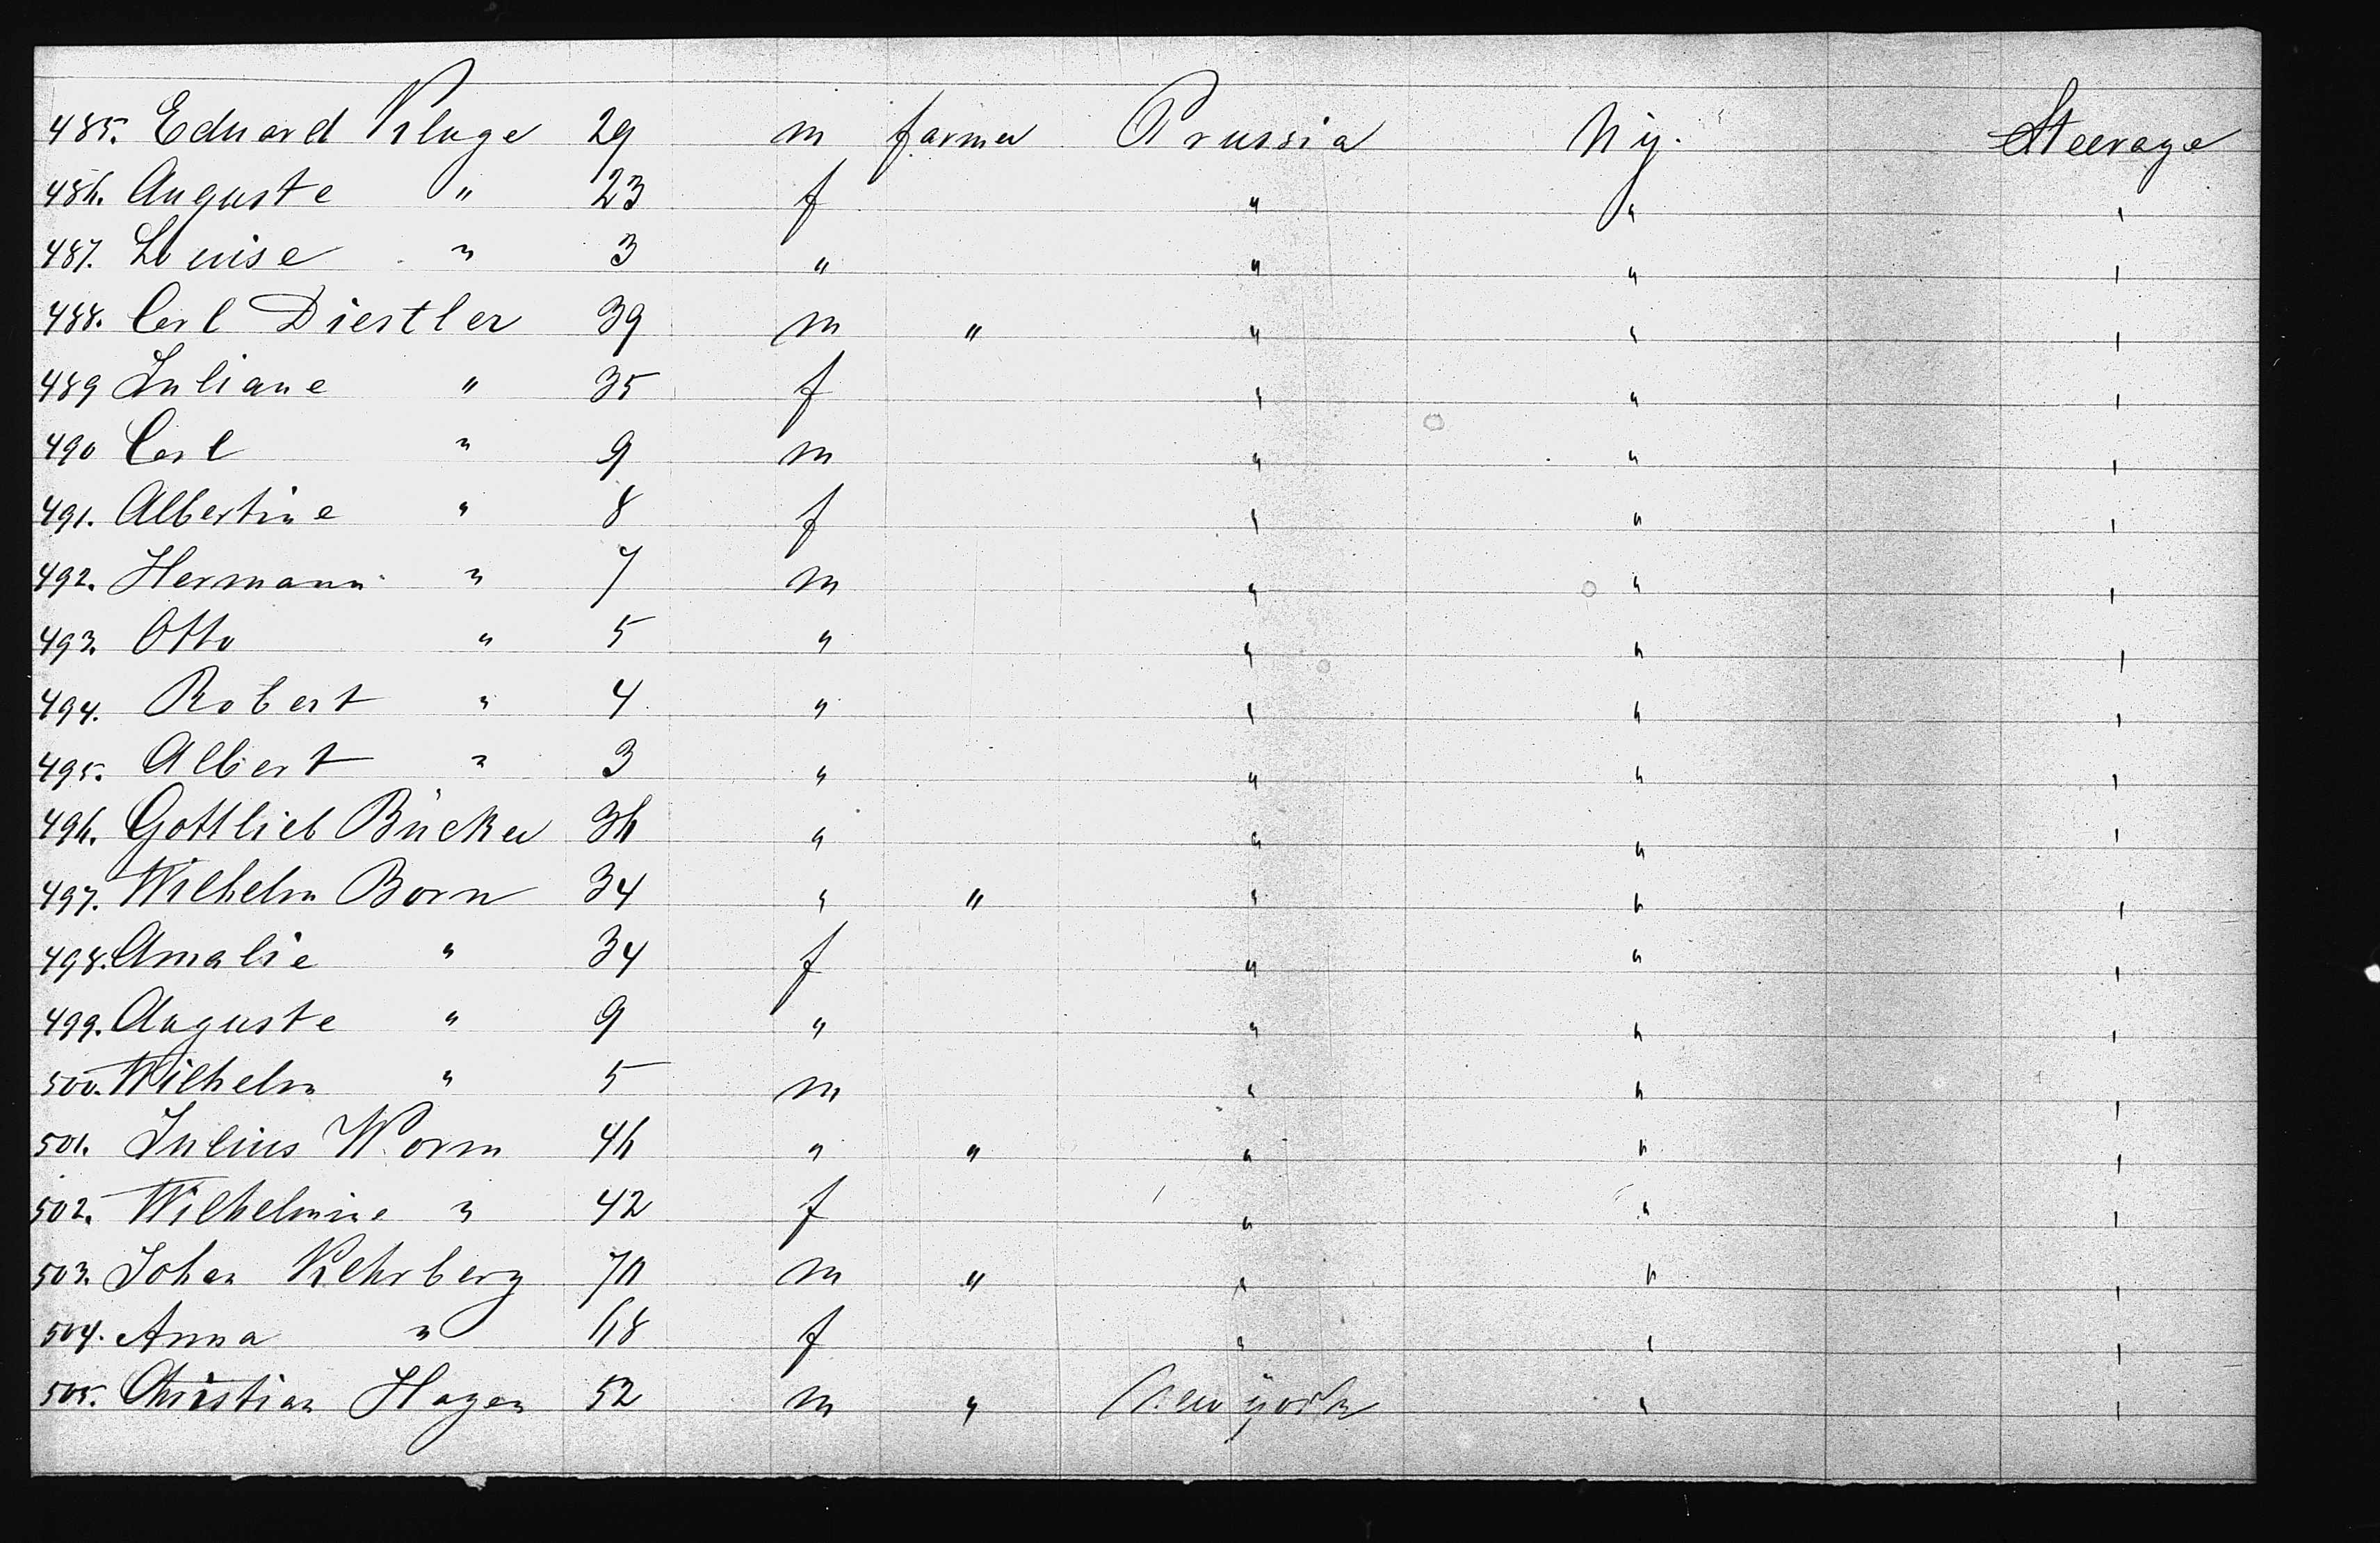 485. Eduard Kluge 29 m farmer Prussia Ny. Steerage
486. Auguste " 23 f " " "
487. Louise " 3 " " " "
488. Carl Diestler 39 m " " " "
489 Juliane " 35 f " " "
490 Carl " 9 m " " "
491. Albertine " 8 f " " "
492. Hermann " 7 m " " "
493. Otto " 5 " " " "
494. Robert " 4 " " " "
495. Albert " 3 " " " "
496. Gottlieb Bücker 36 " " " "
497. Wilhelm Born 34 " " " " "
498. Amalie " 34 f " " "
499. Auguste " 9 " " " "
500. Wilhelm " 5 m " " "
501. Julius Worm 46 " " " " "
502. Wilhelmine " 42 f " " "
503. Johan Kehrberg 70 m " " " "
504. Anna " 68 f " " "
505. Christian Hagen 52 m " New york " "